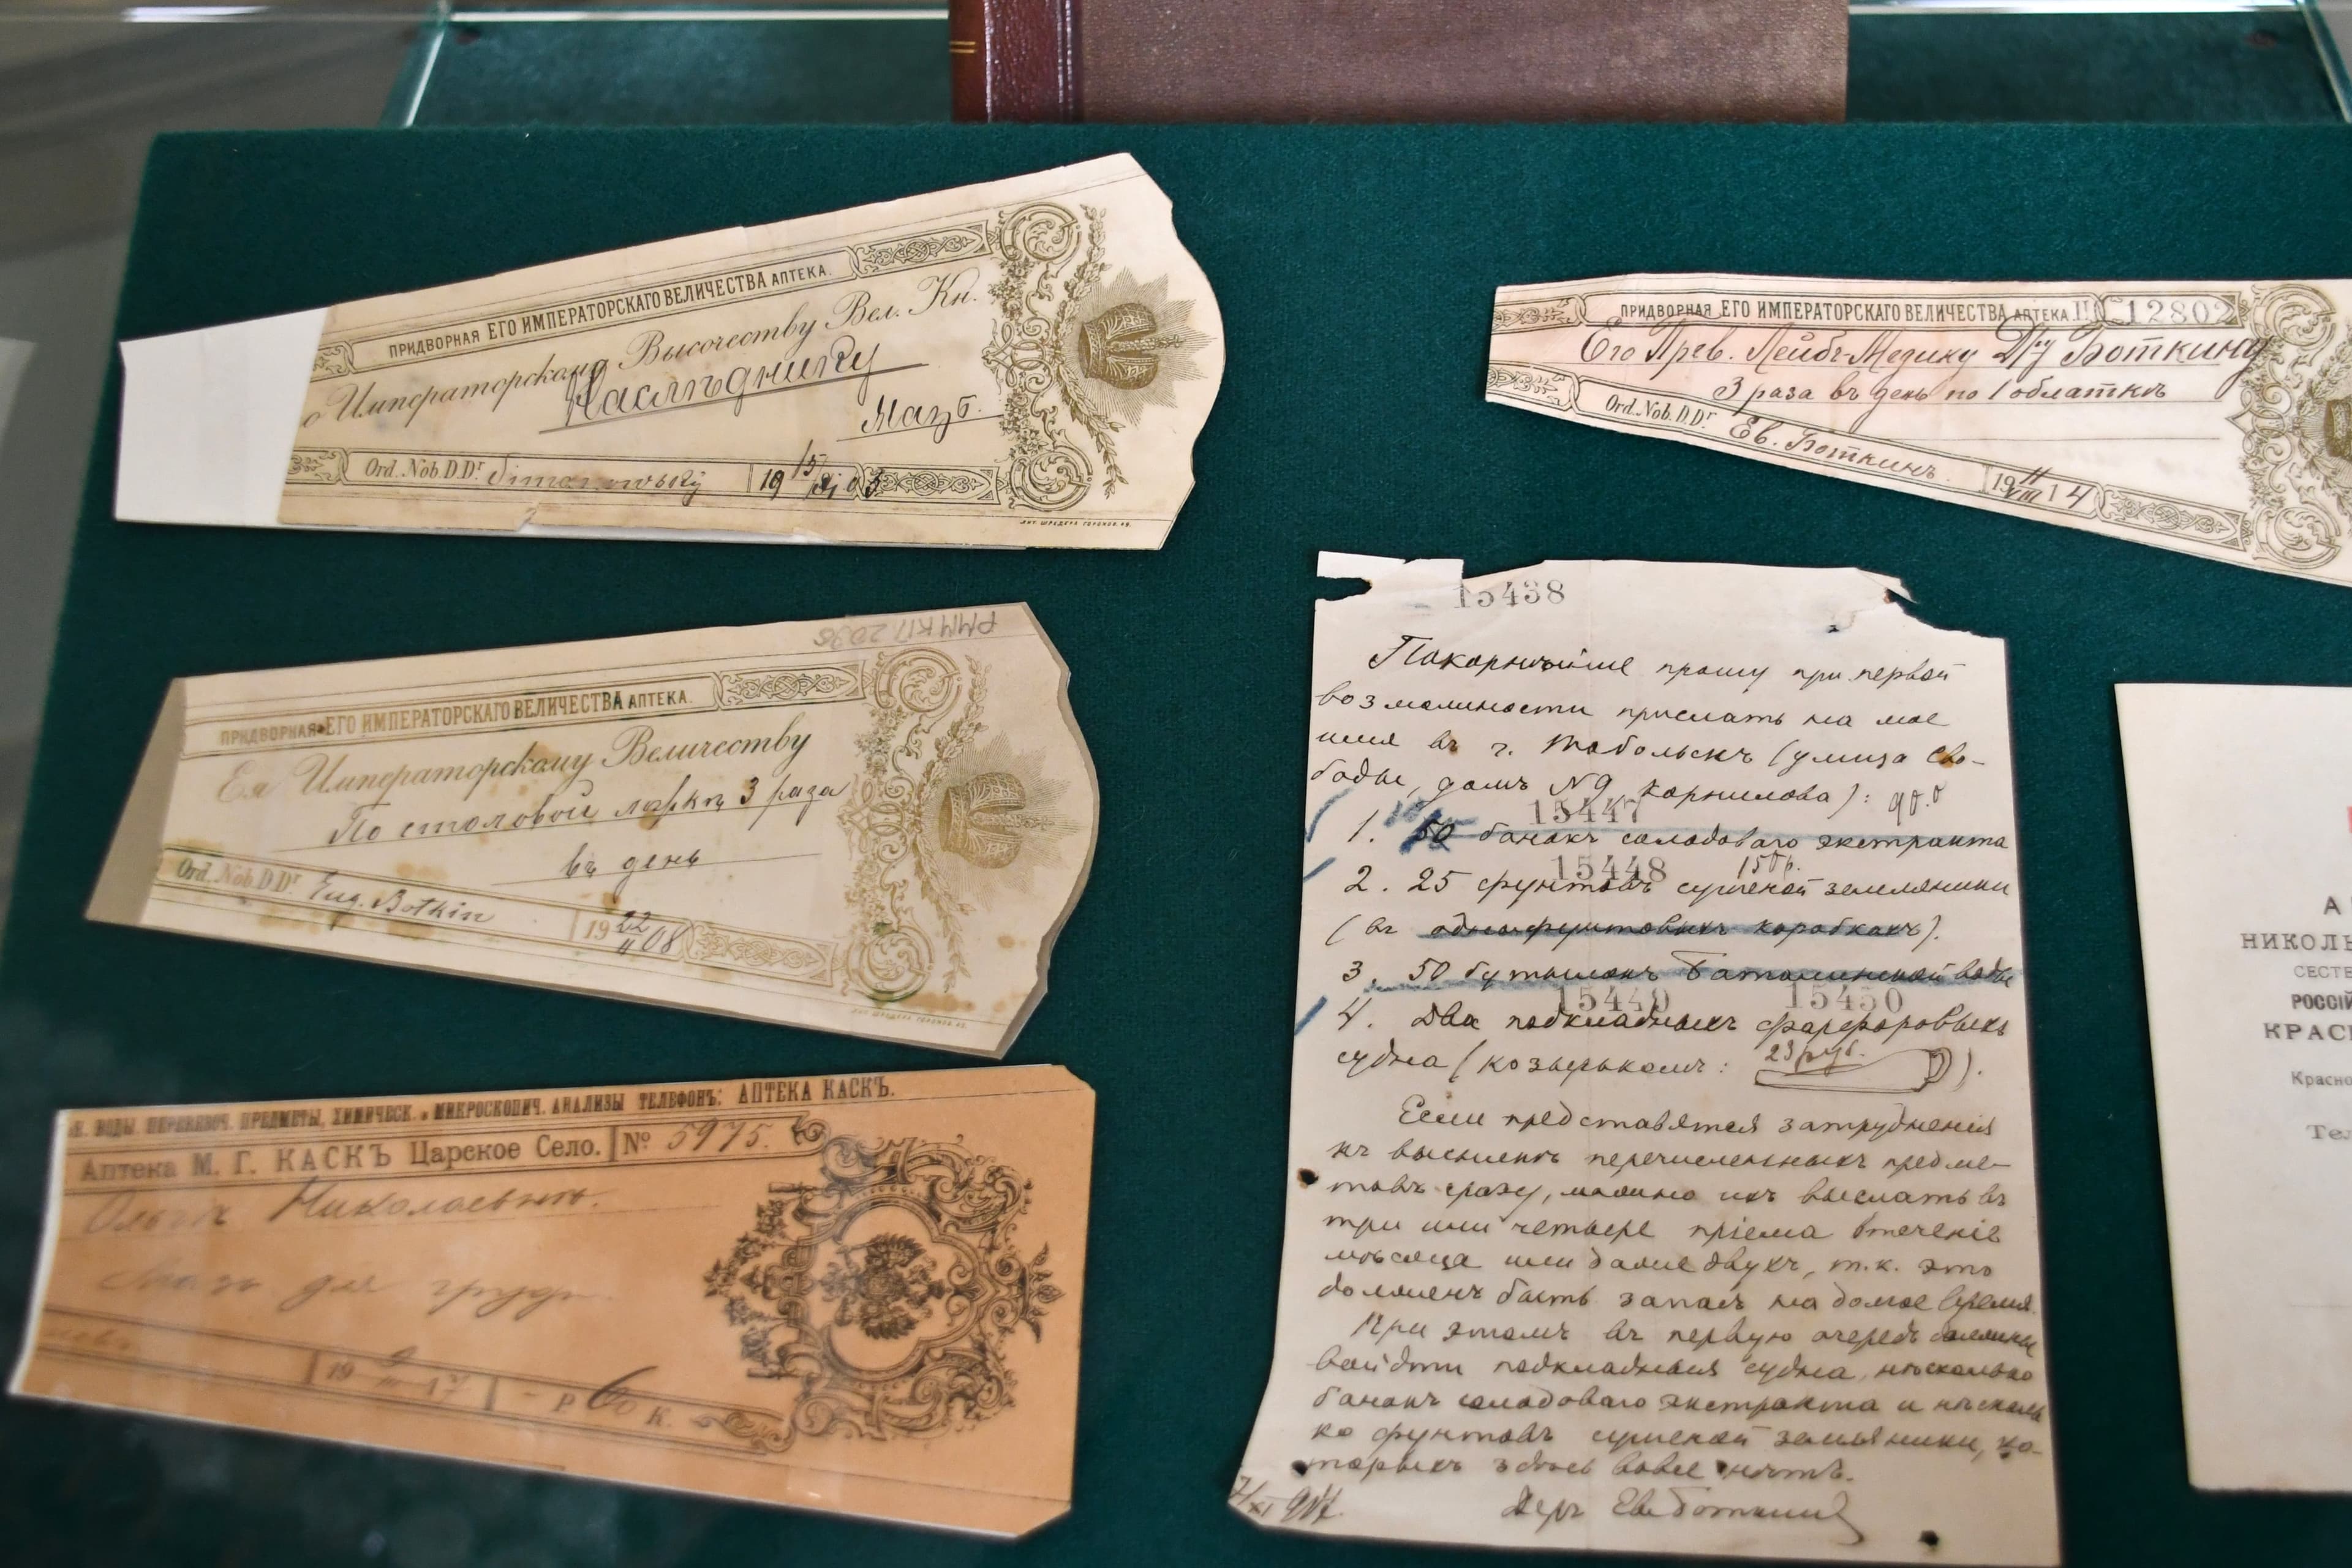 ПРИДВОРНАЯ ЕГО ИМПЕРАТОРСКАГО ВЕЛИЧЕСТВА АПТЕКА.
о Императорскому Высочеству Вел. Кн.
Наслѣднику
Мазь.
Ord. Nob. D. Dr Simanowsky 19 15/XI 03
ЛИТ. ШРЕДЕРА ГОРОХОВ. 49.
РММ КП 2036
ПРИДВОРНАЯ ЕГО ИМПЕРАТОРСКАГО ВЕЛИЧЕСТВА АПТЕКА.
Ея Императорскому Величеству
По столовой ложкѣ 3 раза
въ день
Ord. Nob. D. Dr Eug. Botkin 19 22/II 08
ЛИТ. ШРЕДЕРА ГОРОХОВ. 49.
Н. ВОДЫ. ПЕРЕВЯЗОЧ. ПРЕДМЕТЫ, ХИМИЧЕСК. и МИКРОСКОПИЧ. АНАЛИЗЫ ТЕЛЕФОНЪ: АПТЕКА КАСКЪ.
Аптека М. Г. КАСКЪ Царское Село. № 5975.
Ольгѣ Николаевнѣ.
Мазь для груди
19 17 - Р 60 К.
ПРИДВОРНАЯ ЕГО ИМПЕРАТОРСКАГО ВЕЛИЧЕСТВА АПТЕКА 12802
Его Прев. Лейбъ-Медику Д-ру Боткину
3 раза въ день по 1 облаткѣ
Ord. Nob. D. Dr. Ев. Боткинъ. 19 11/VIII 14
15438
Покорнѣйше прошу при первой
возможности прислать на мое
имя въ г. Тобольскъ (улица Сво-
боды, домъ №9, Корнилова):
15447
1. 50 банокъ солодоваго экстракта
15448 150 р.
2. 25 фунтовъ сушеной земляники
(въ однофунтовыхъ коробкахъ).
3. 50 бутылокъ Баталинской воды
15449 15450
4. Два подкладныхъ фарфоровыхъ
судна (козырькомъ: 23 руб. ).
Если представятся затрудненія
къ высылкѣ перечисленныхъ предме-
товъ сразу, можно ихъ выслать въ
три или четыре пріема втеченіе
мѣсяца или даже двухъ, т.к. это
долженъ быть запасъ на долгое время.
При этомъ въ первую очередь должны
войдти подкладныя судна, нѣсколько
банокъ солодоваго экстракта и нѣсколь
ко фунтовъ сушеной земляники, ко-
торыхъ здѣсь вовсе нѣтъ.
7/XI 917. Д-ръ Ев. Боткинъ
А
НИКОЛЬ
СЕСТЕ
РОССІЙ
КРАС
Красно
Тел